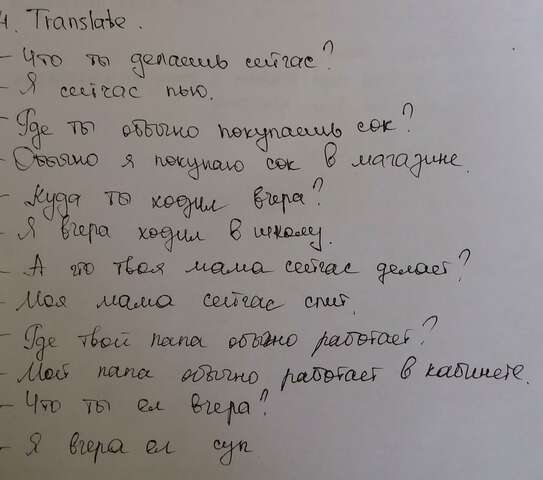 4. Translate.
- Что ты делаешь сейчас?
- Я сейчас пью.
- Где ты обычно покупаешь сок?
- Обычно я покупаю сок в магазине.
- Куда ты ходил вчера?
- Я вчера ходил в школу.
- А что твоя мама сейчас делает?
- Моя мама сейчас спит.
- Где твой папа обычно работает?
- Мой папа обычно работает в кабинете.
- Что ты ел вчера?
- Я вчера ел суп